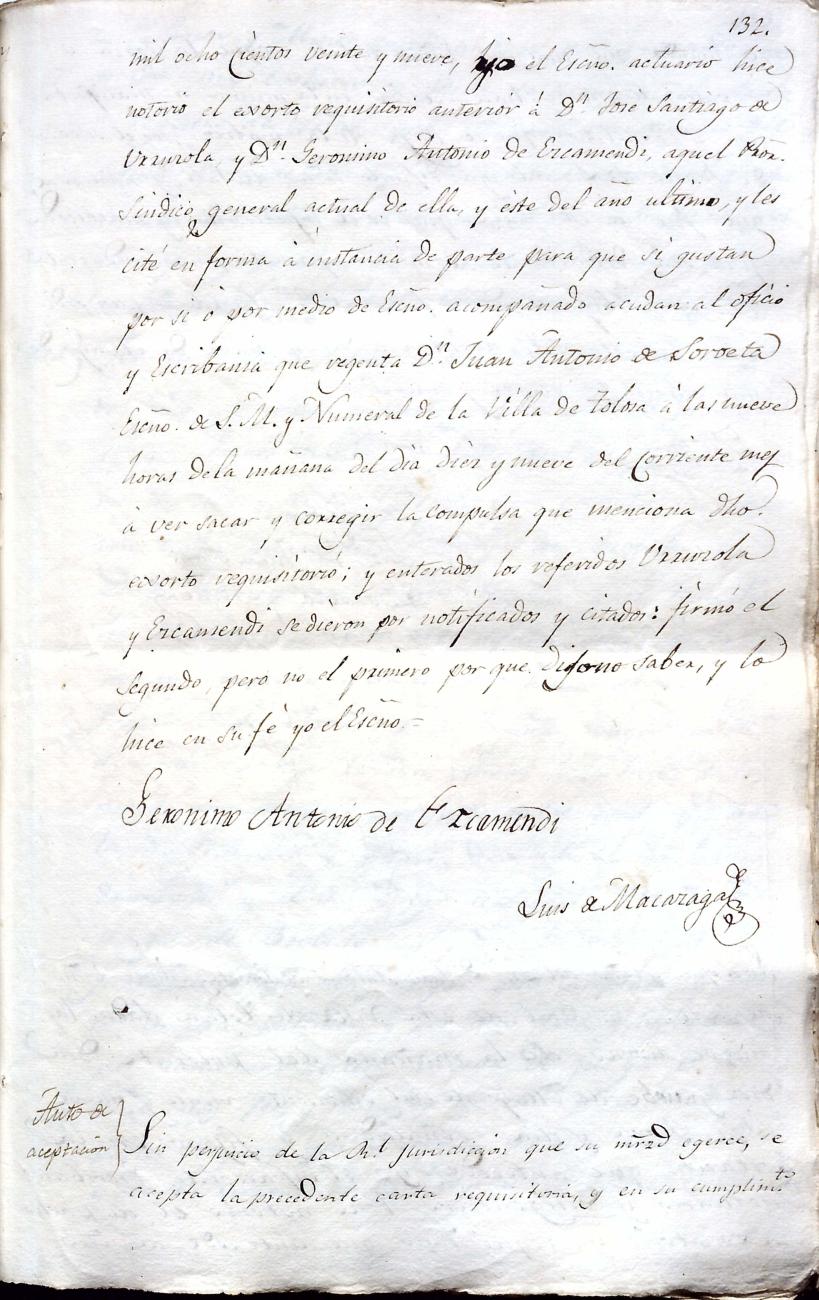 132.
mil ocho cientos veinte y nueve, yo el Esc̃no. actuario hice
notorio el exorto requisitorio anterior á Dⁿ. Jose Santiago de
Urruzola y Dⁿ. Geronimo Antonio de Ezcamendi, aquel Prõr.
Sindico general actual de ella, y éste del año ultimo, y les
cité en forma á instancia de parte para que si gustan
por si ó por medio de Esc̃no. acompañado acudan al oficio
y Escribania que regenta Dⁿ. Juan Antonio de Soroeta
Esc̃no. de S. M. y Numeral de la Villa de Tolosa á las nueve
horas dela mañana del dia diez y nueve del corriente mes
á ver sacar y corregir la compulsa que menciona dho.
exorto requisitorio; y enterados los referidos Urruzola
y Ezcamendi se dieron por notificados y citados: firmó el
segundo, pero no el primero por que dijo no saber, y lo
hice en su fé yo el Esc̃no. =
Geronimo Antonio de Ezcamendi
Luis de Macazaga
Auto de
aceptación
Sin perjuicio de la Rˡ. jurisdiccion que su mrzd egerce, se
acepta la precedente carta requisitoria, y en su cumplimᵗᵒ